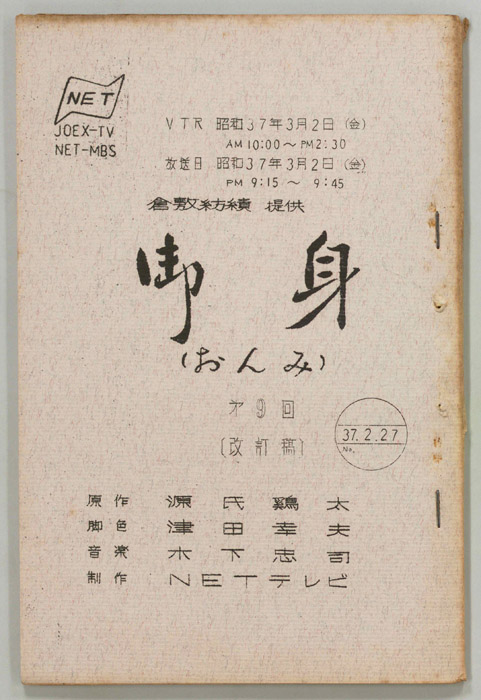 NET
JOEX-TV
NET-MBS
VTR 昭和37年3月2日(金)
AM 10:00～PM 2:30
放送日 昭和37年3月2日(金)
PM 9:15～9:45
倉敷紡績 提供
御身
(おんみ)
才9回
〔改訂稿〕
37.2.27
No.
原作 源氏鶏太
脚色 津田幸夫
音楽 木下忠司
制作 NETテレビ